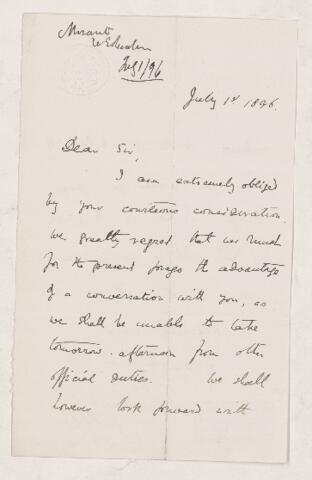 July 1/96
July 1st 1896.
Dear Sir,
I am extremely obliged
by your courteous consideration.
We greatly regret that we must
for the present forego the advantage
of a conversation with you, as
we shall be unable to take
tomorrow afternoon from other
official duties. We shall
however look forward with